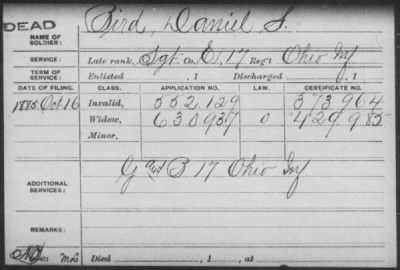 DEAD
NAME OF SOLDIER: Bird, Daniel S.
SERVICE: Late rank, Sgt Co. E, 17 Reg't Ohio Inf
TERM OF SERVICE: Enlisted , 1 Discharged , 1
DATE OF FILING. CLASS. APPLICATION NO. LAW. CERTIFICATE NO.
1885 Oct 16 Invalid, 552.129 573.964
Widow, 630937 0 429.985
Minor,
ADDITIONAL SERVICES: G and B 17 Ohio Inf
REMARKS:
Died , 1 , at